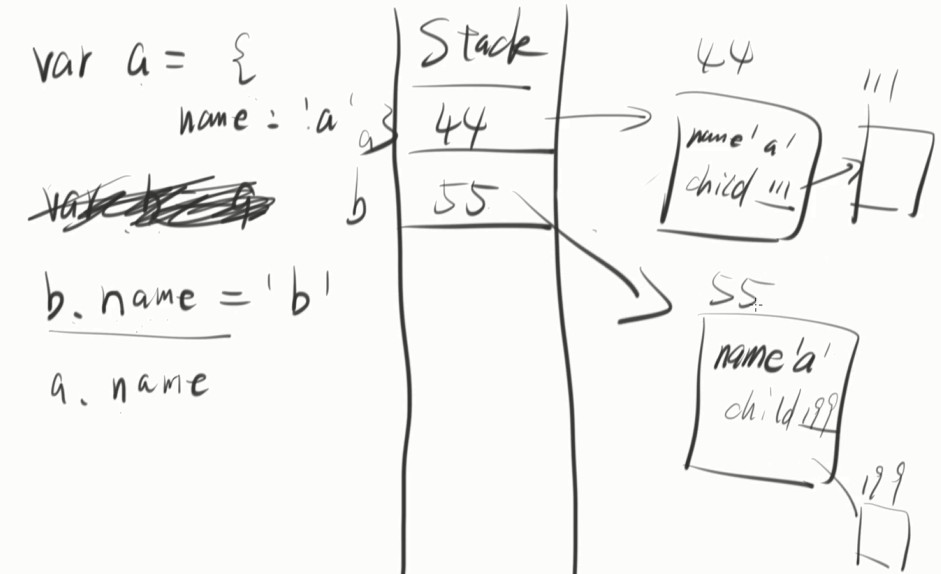 var a = {
name : 'a'
}
b.name = 'b'
a.name
Stack
a 44
b 55
44
name 'a'
child 111
111
55
name 'a'
child 199
199